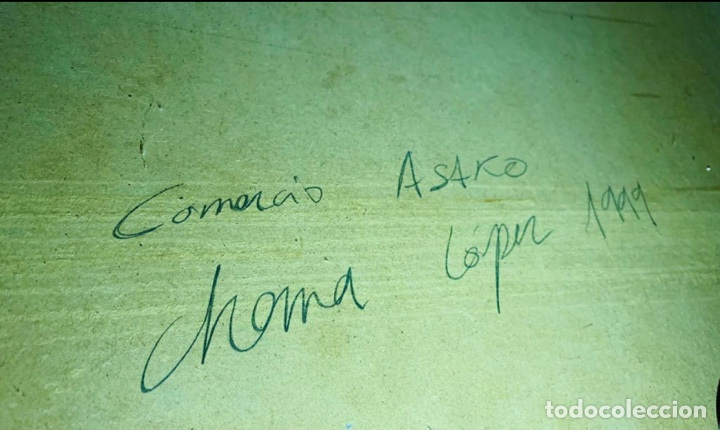 Comercio ASAKO
Chema López 1999
todocoleccion